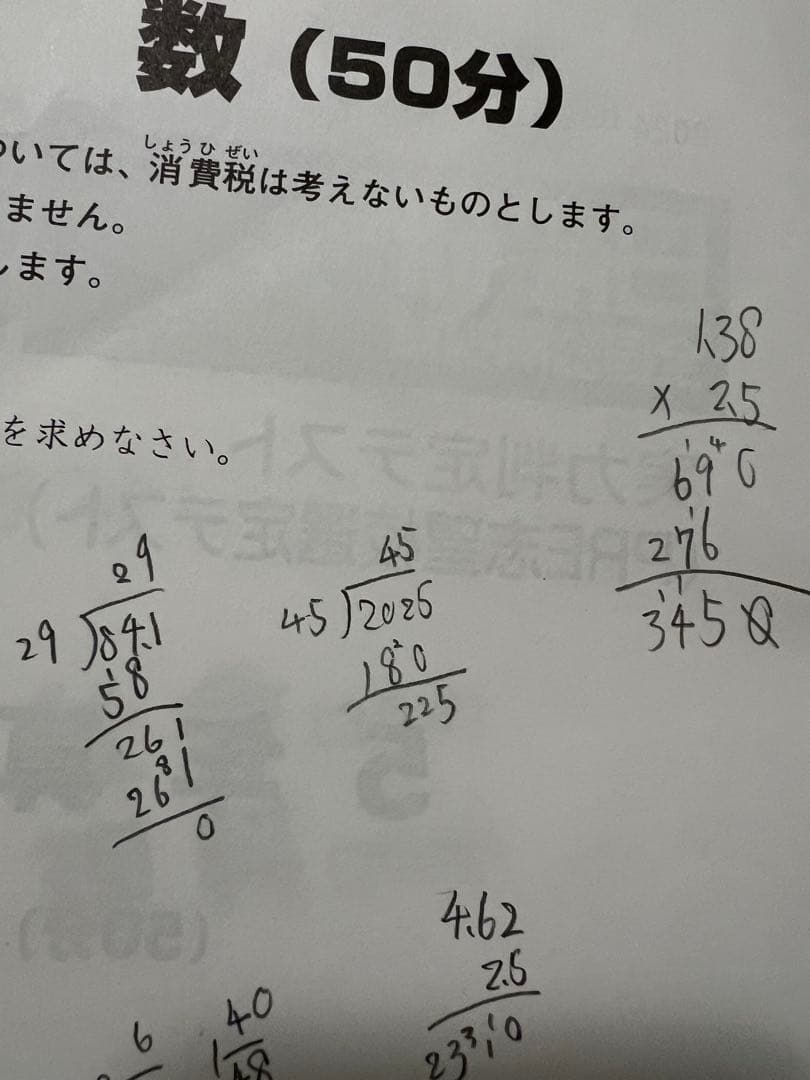 数(50分)
ついては、消費税は考えないものとします。
しょうひぜい
ません。
します。
を求めなさい。
1.38
× 2.5
690
276
3450
29
29)84.1
58
261
261
0
45
45)2025
180
225
4.62
2.5
2310
6
40
1
48